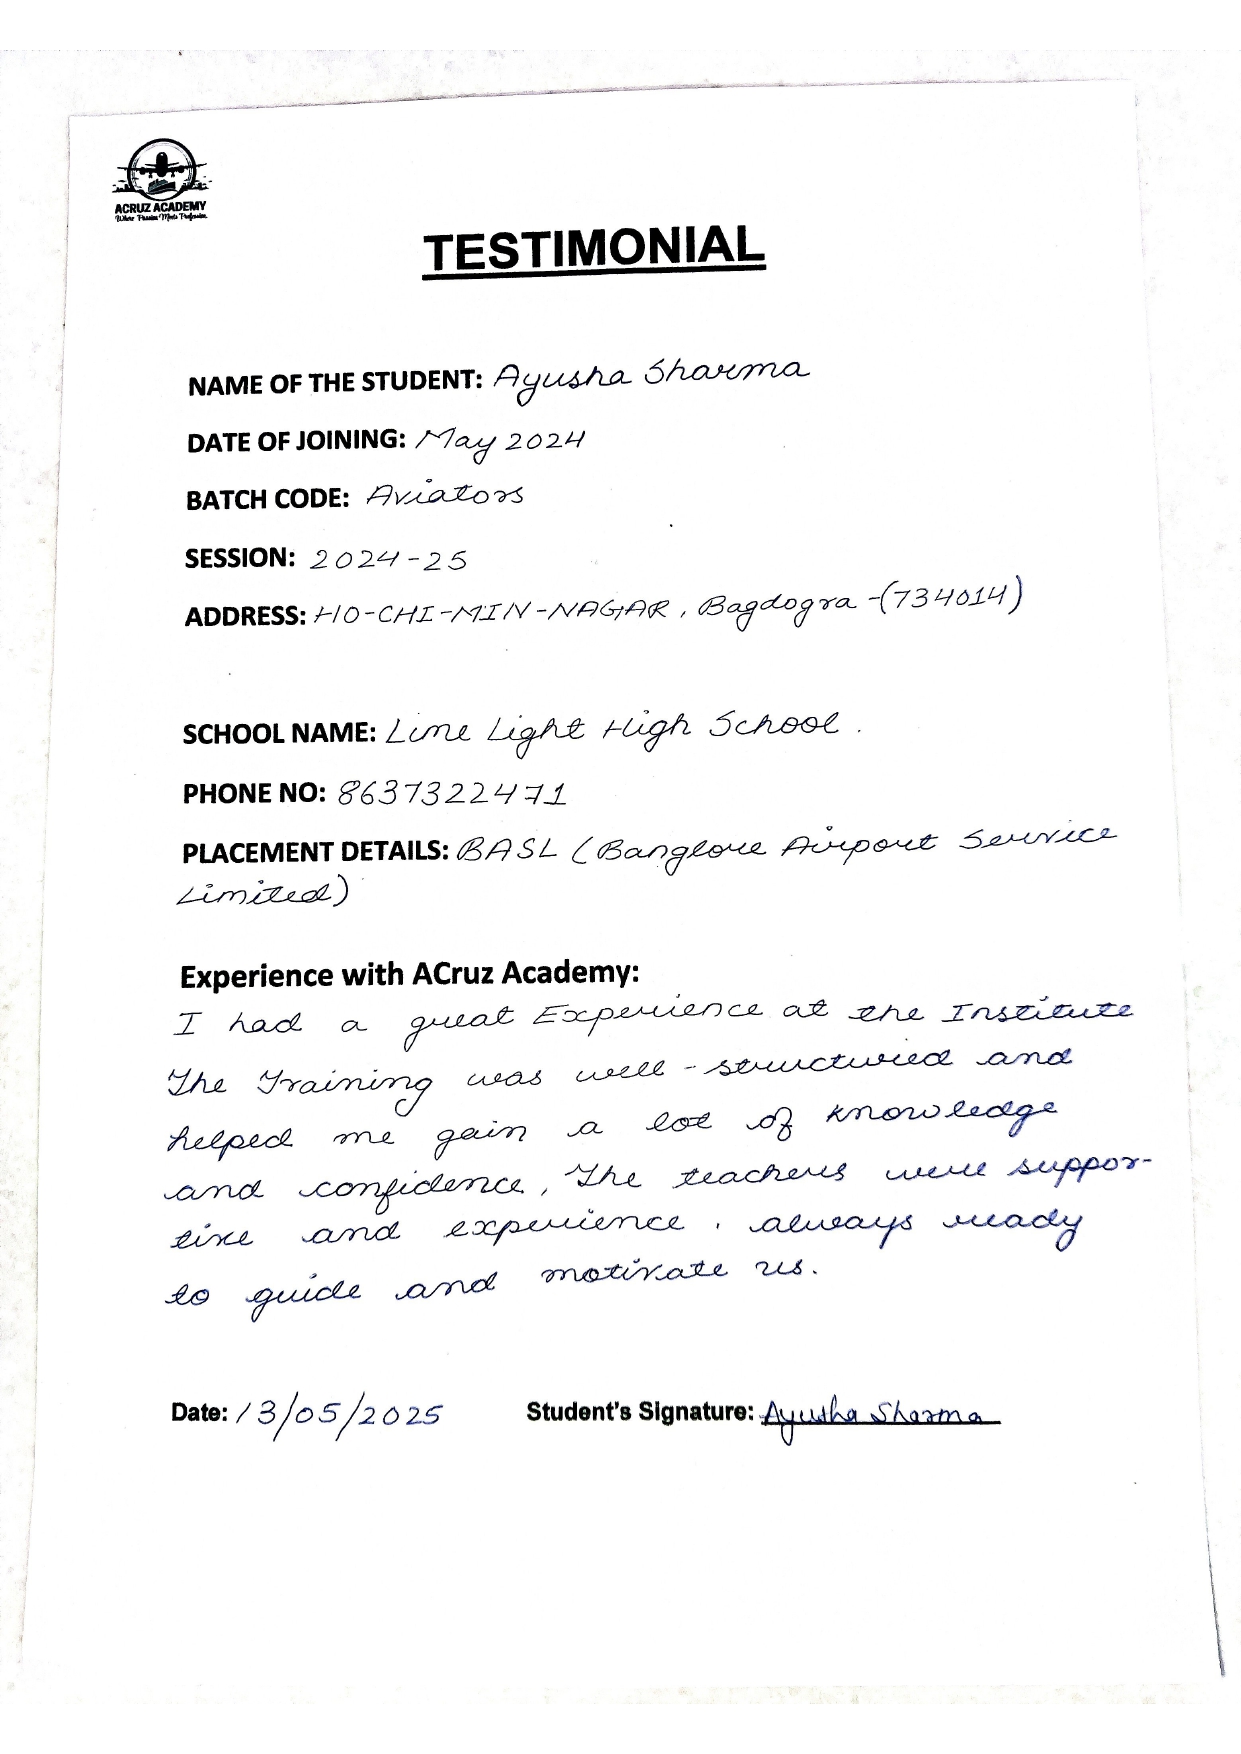 ACRUZ ACADEMY
Where Passion Meets Profession
TESTIMONIAL
NAME OF THE STUDENT: Ayusha Sharma
DATE OF JOINING: May 2024
BATCH CODE: Aviators
SESSION: 2024-25
ADDRESS: HO-CHI-MIN-NAGAR, Bagdogra -(734014)
SCHOOL NAME: Lime Light High School.
PHONE NO: 8637322471
PLACEMENT DETAILS: BASL (Banglore Airport Service
Limited)
Experience with ACruz Academy:
I had a great Experience at the Institute
The Training was well-structured and
helped me gain a lot of knowledge
and confidence, The teachers were suppor-
tive and experience, always ready
to guide and motivate us.
Date: 13/05/2025 Student's Signature: Ayusha Sharma